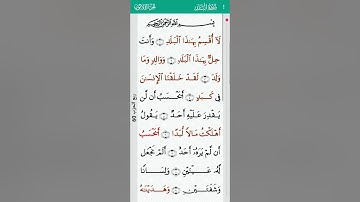 بِسْمِ اللَّهِ الرَّحْمَٰنِ الرَّحِيمِ
لَآ أُقْسِمُ بِهَٰذَا ٱلْبَلَدِ ۝ وَأَنتَ
حِلٌّۢ بِهَٰذَا ٱلْبَلَدِ ۝ وَوَالِدٍ وَمَا
وَلَدَ ۝ لَقَدْ خَلَقْنَا ٱلْإِنسَٰنَ
فِى كَبَدٍ ۝ أَيَحْسَبُ أَن لَّن
يَقْدِرَ عَلَيْهِ أَحَدٌ ۝ يَقُولُ
أَهْلَكْتُ مَالًا لُّبَدًا ۝ أَيَحْسَبُ
أَن لَّمْ يَرَهُۥٓ أَحَدٌ ۝ أَلَمْ نَجْعَل
لَّهُۥ عَيْنَيْنِ ۝ وَلِسَانًا
وَشَفَتَيْنِ ۝ وَهَدَيْنَٰهُ